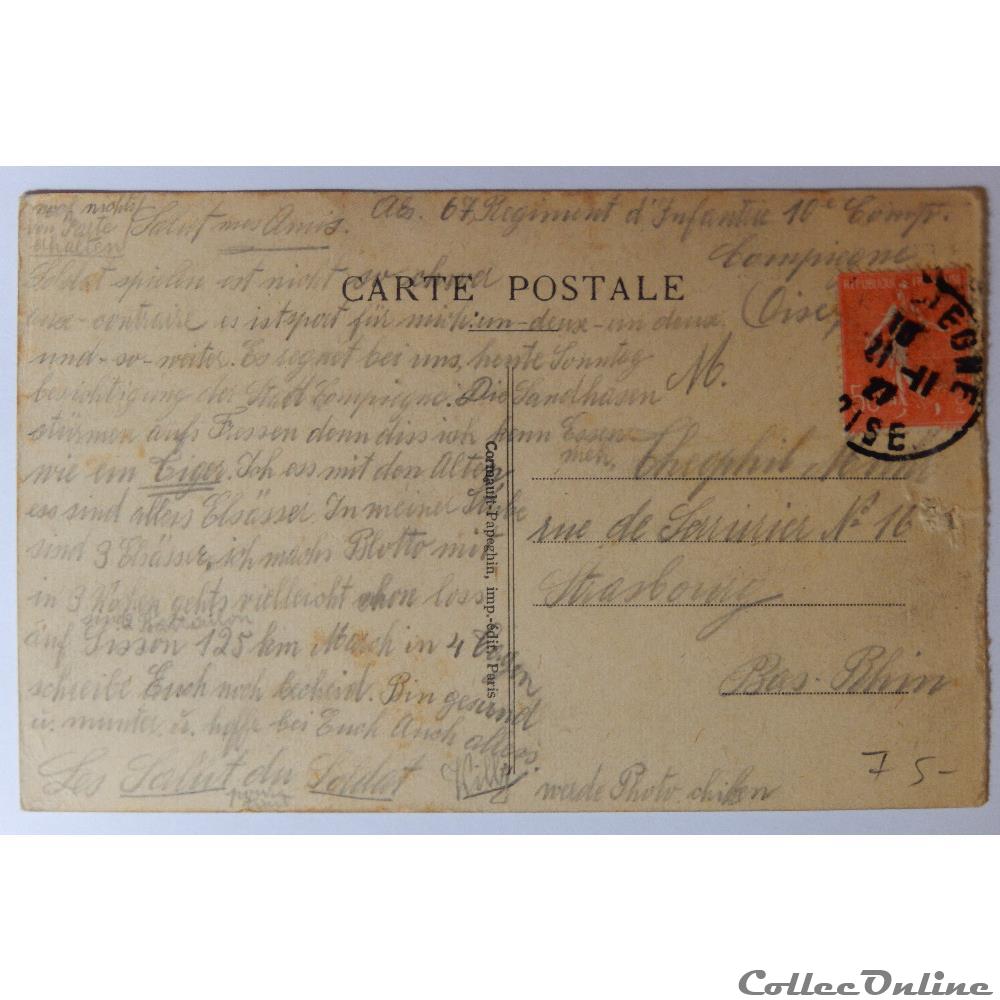 von Karte
erhalten
Salut mes Amis.
Abs. 67. Regiment d'Infantrie 10e Comp.
Compiegne
(Oise)
CARTE POSTALE
Soldat spielen ist nicht so
contraire es ist sport für mich: un-deux-un deux.
und-so-weiter. Es regnet bei uns, heute Sonntag
besichtigung der Stadt Compiegne. Die Sandhasen
stürmen aufs Fressen denn diss ich kann Essen
wie ein Tiger. Ich ess mit den Alten,
ess sind allers Elsässer. In meiner Stube
sind 3 Elsässer, ich mache Blotto mit
in 3 gehts vielleicht schon loss
auf Sisson 125 km March in 4 Tagen
schreibe Euch noch bescheid. Bin gesund
u. munter. u. hoffe bei Euch Auch allers.
Les Salut du Soldat Willy
werde Photo chiken
M.
Theophil
rue de N° 16
Strasbourg
Bas-Rhin
Cormault-Papeghin, imp.-édit. Paris
REPUBLIQUE
50
OISE
7 5-
CollecOnline